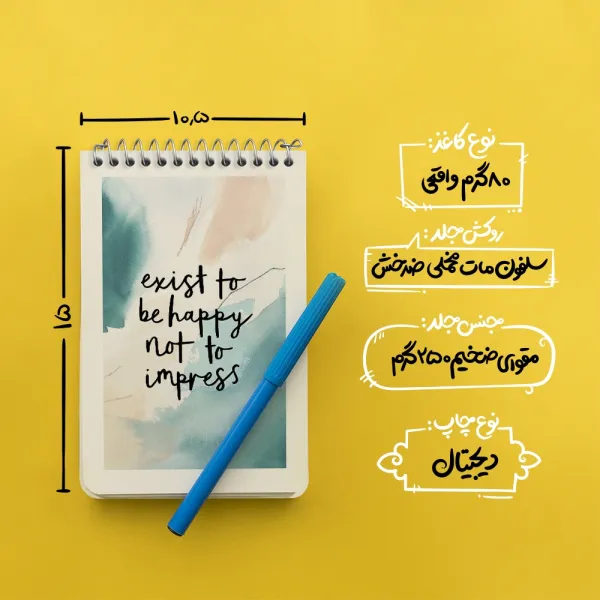 ۱۰,۵
۱۵
exist to
be happy
not to
impress
نوع کاغذ:
۸۰گرم واقعی
روکش جلد:
سلفون مات مخملی ضدخش
جنس جلد:
مقوای ضخیم ۲۵۰گرم
نوع چاپ:
دیجیتال